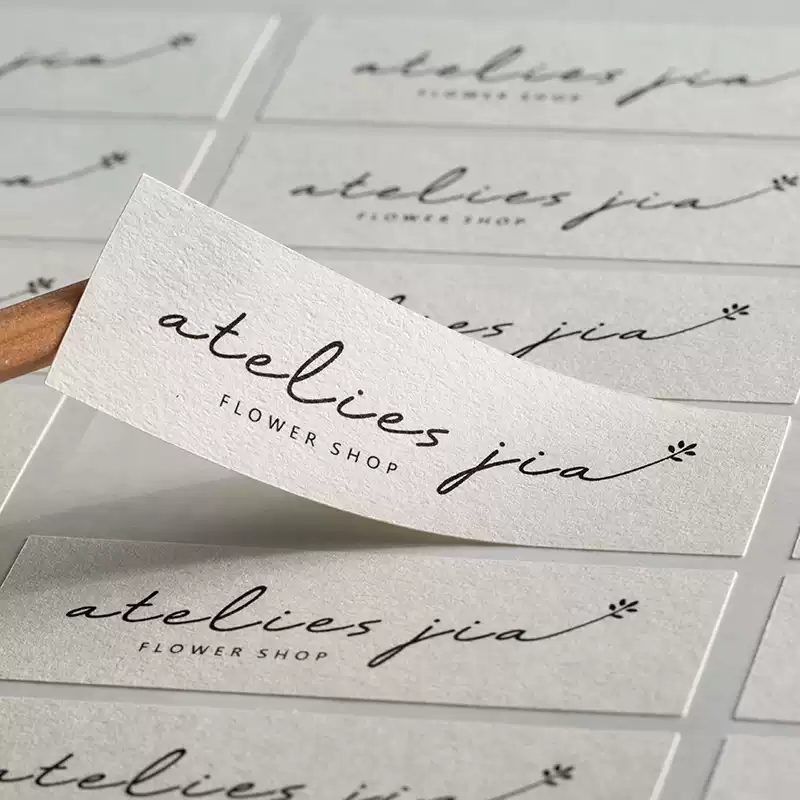 atelies jia
FLOWER SHOP
atelies jia
FLOWER SHOP
es jia
atelies jia
FLOWER SHOP
atelies jia
FLOWER SHOP
atelies